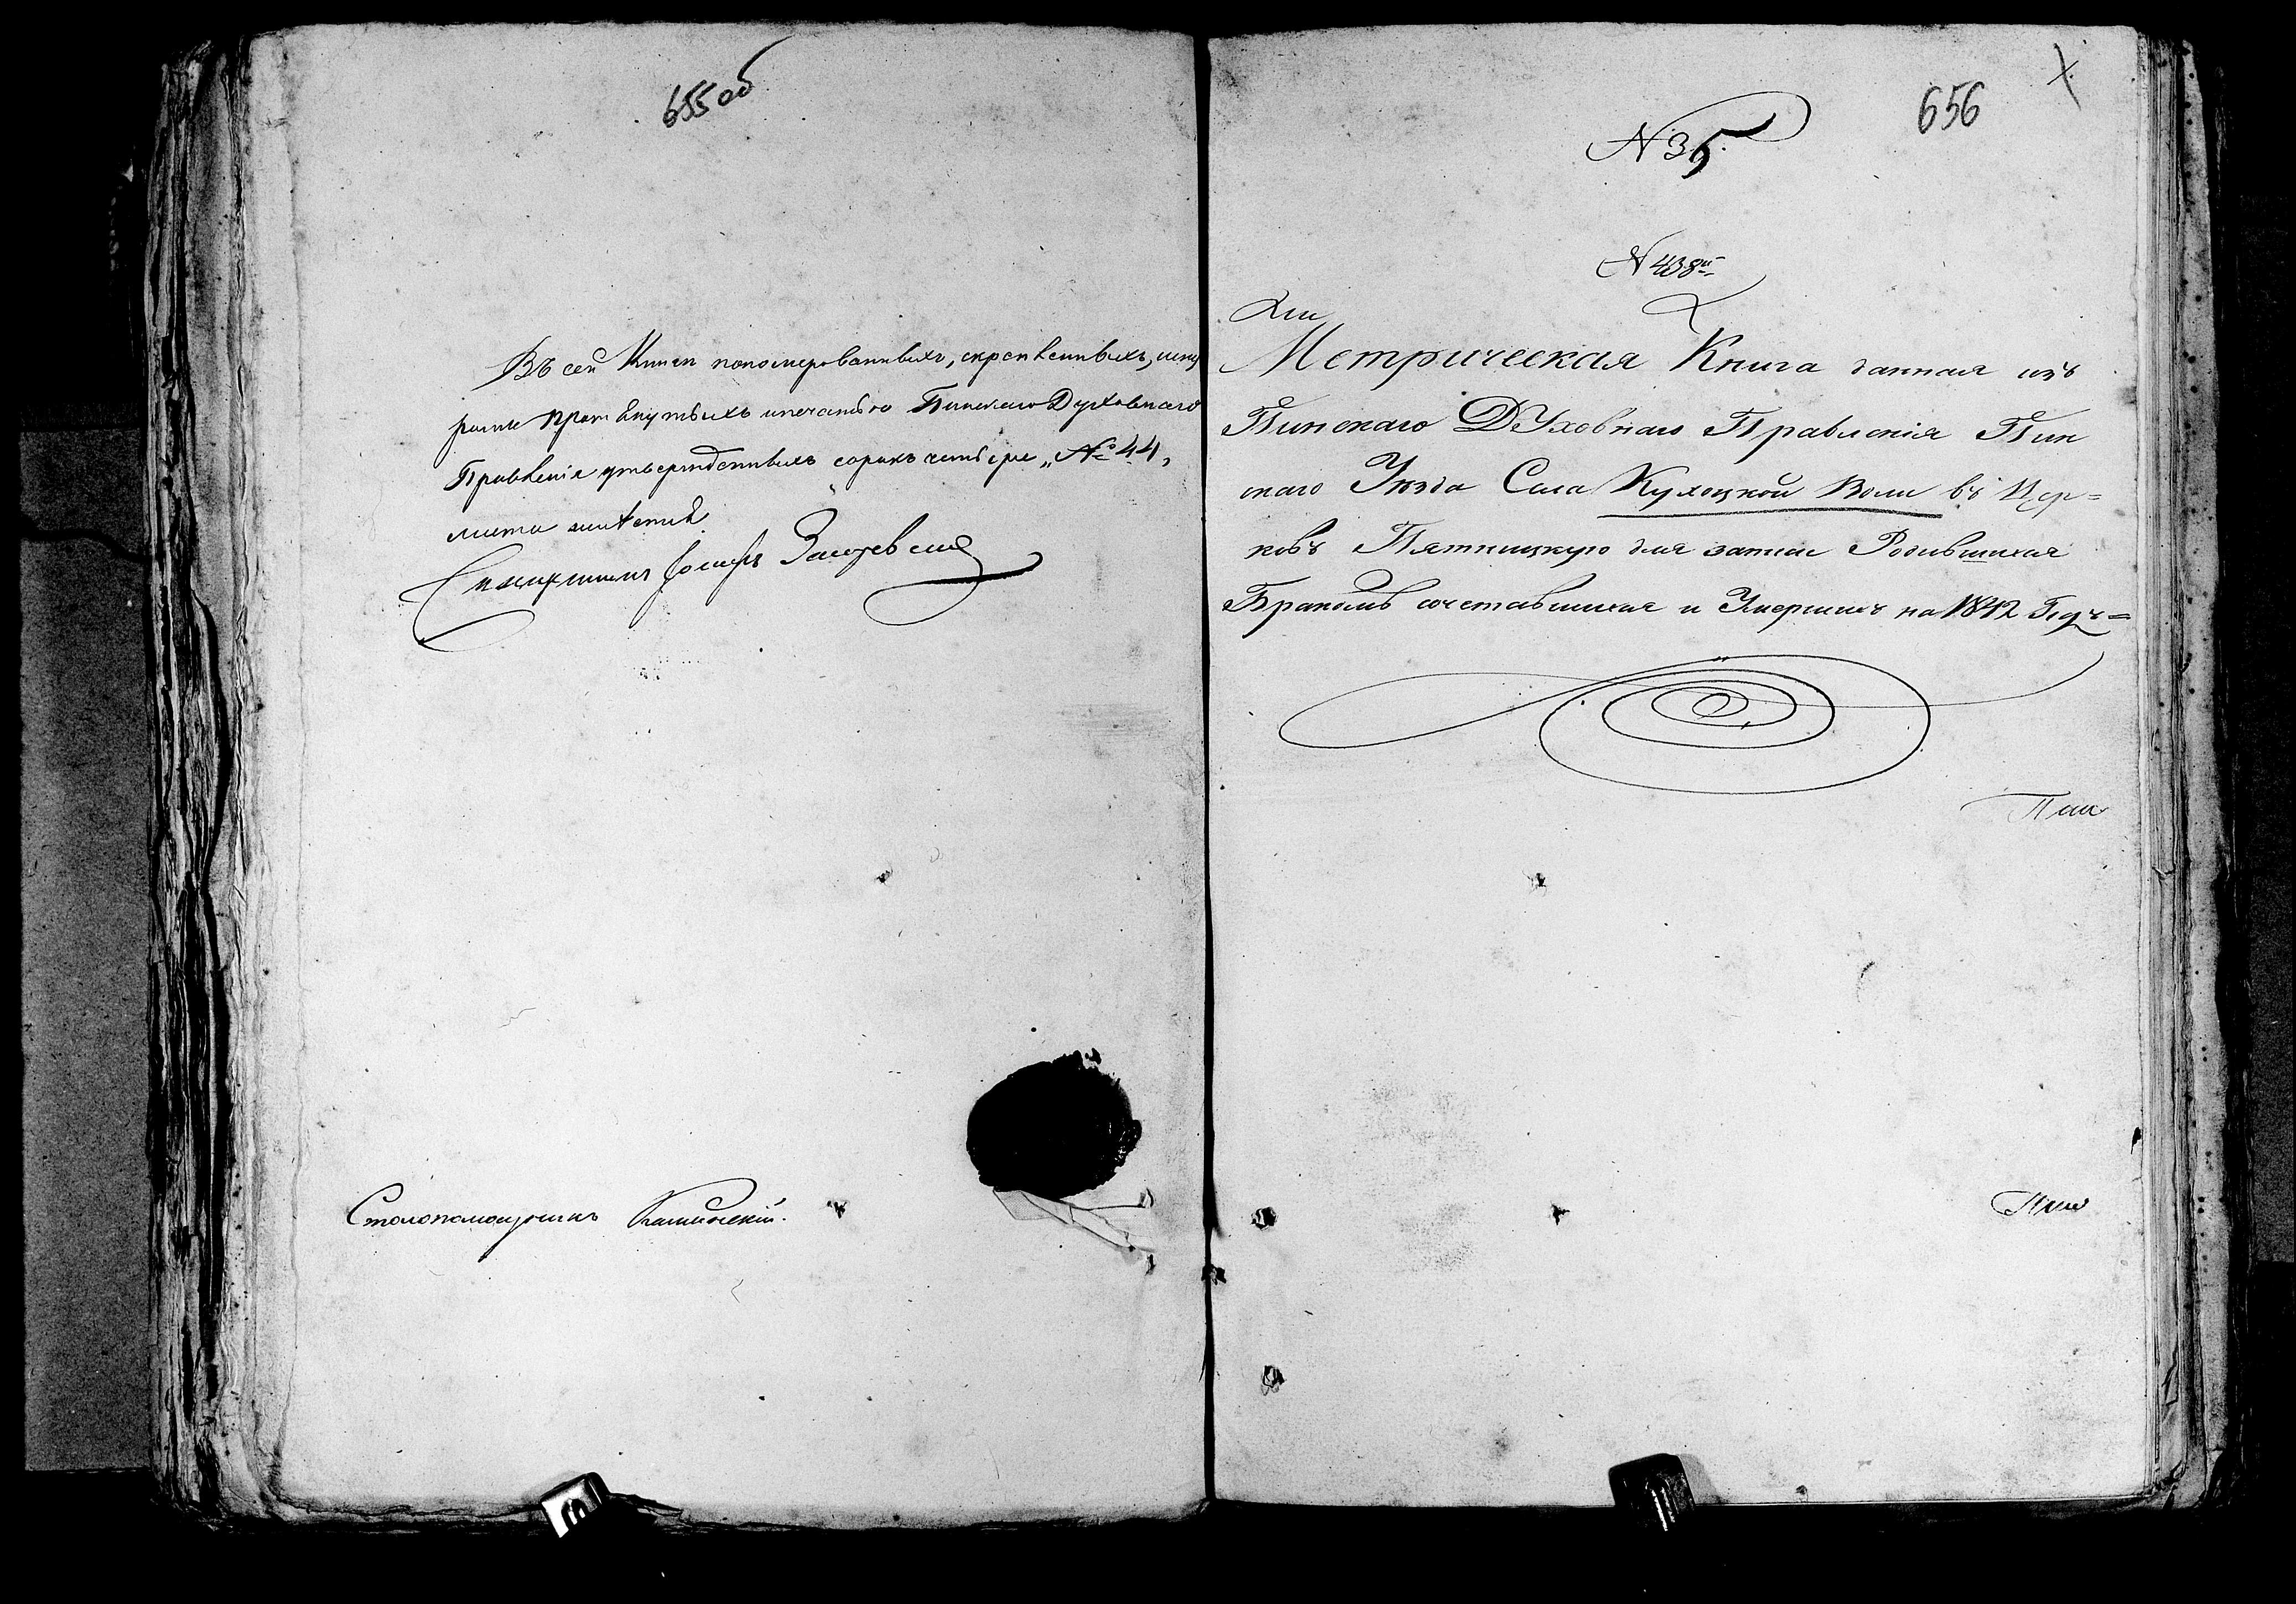 655 об
Въ сей Книги пономерованныхъ, скрепленныхъ, шну
ромъ протянутыхъ и печатью Пинскаго Духовнаго
Правленія утвержденныхъ сорокъ четыре „№ 44„
листа
Іосифъ
Столопомощникъ
656
N 35
N 438й
Метрическая Книга данная изъ
Пинскаго Духовнаго Правленія Пин
скаго Уезда Села Кухоцкой Воли въ Цер=
ковъ Пятницкую для записи Родившихся
Бракомъ сочетавшихся и Умершихъ на 1842 Годъ=